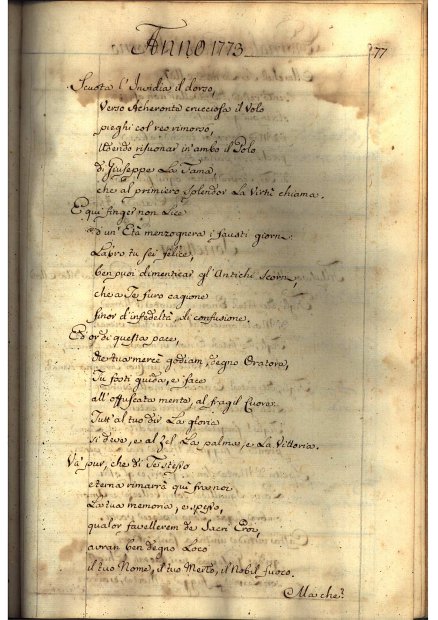 Anno 1773
77
Scuota l'Invidia il dorso,
Verso Acheronte crucciosa il volo
pieghi col reo rimorso,
Udendo risuonar in ambo il Polo
di Giuseppe La Fama,
che al primiero Splendor La Virtù chiama.
E quì finger non Lice
d'un' Età menzognera i fausti giorni:
Labro tu sei felice,
ben puoi dimenticar gl'Antichi Scorni,
che a Te furo cagione
finor d'infedeltà, di confusione.
Ed or di questa pace,
die tua mercè godiam, degno Oratore,
Tu fosti guida, e face
all'offuscata mente, al fragil Cuore:
Tutt'al tuo dir La gloria
si deve, e al Zel La palma, e La Vittoria.
Và pur, che di Te stesso
eterna rimarrà quì fra noi
La tua memoria, e spesso,
qualor favellerem de Sacri Eroi,
avran ben degno Loco
il tuo Nome, il tuo Merto, il Nobil fuoco.
Ma che?